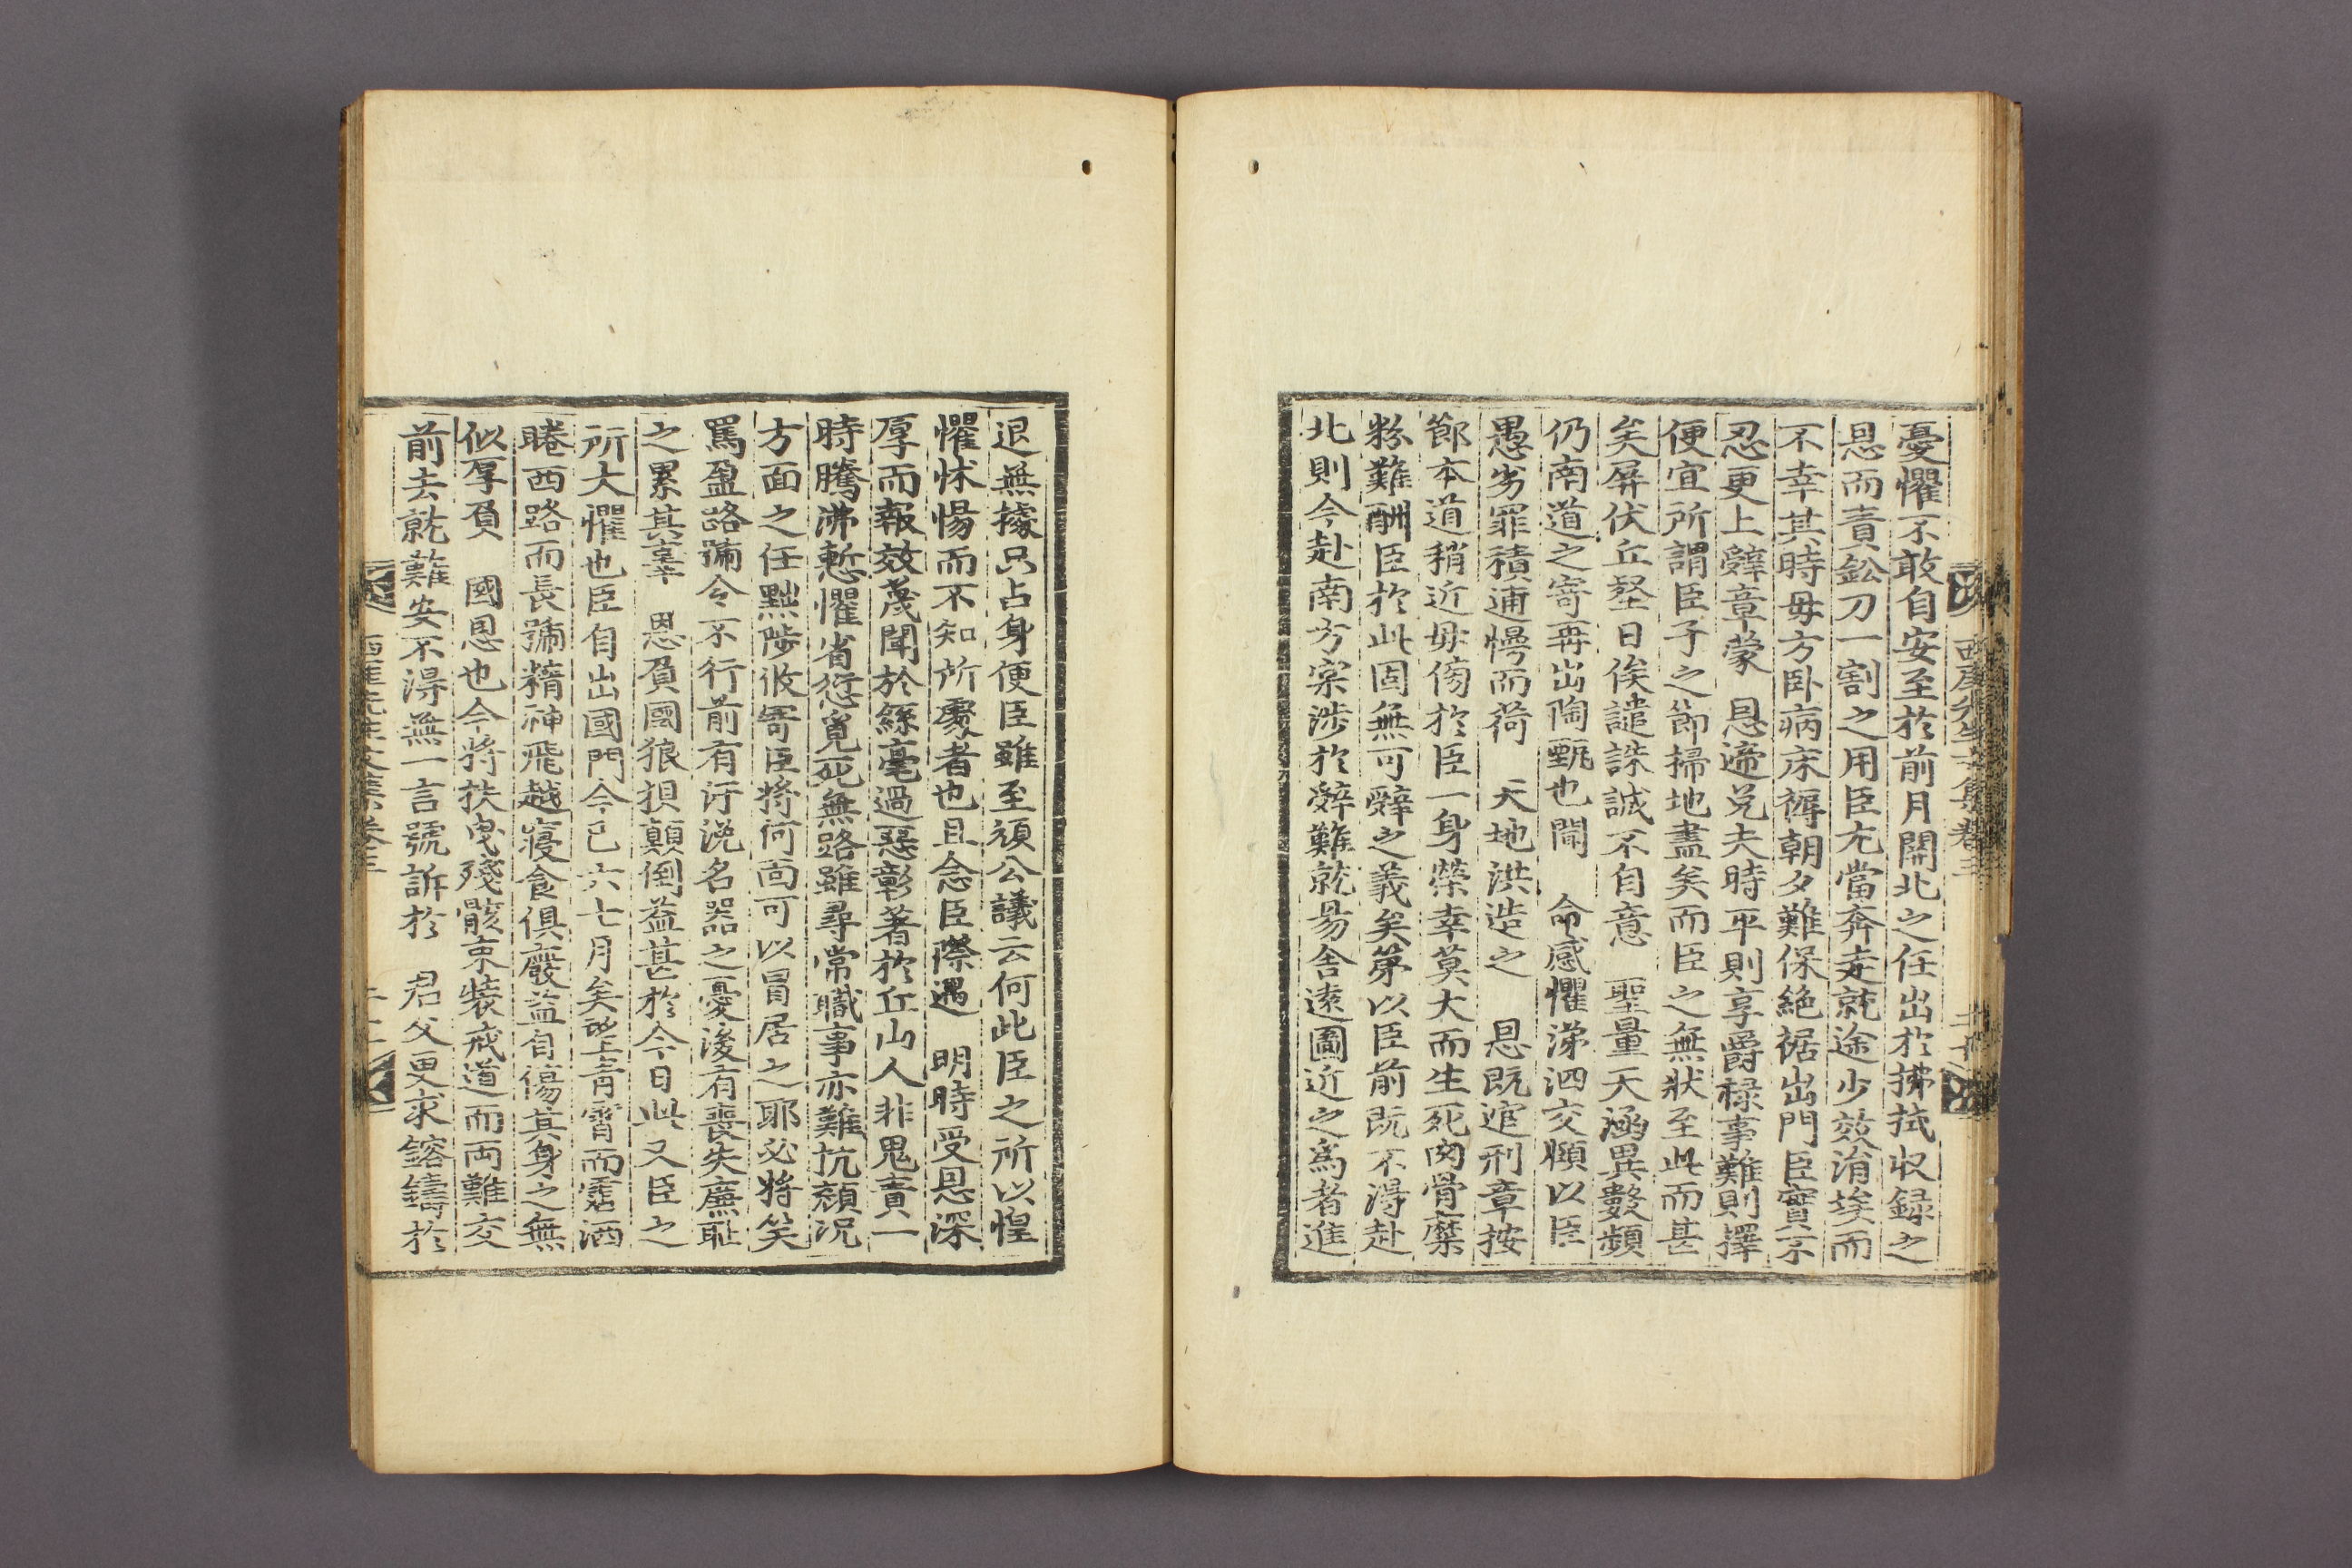 憂懼不敢自安至於前月關北之任出於拂拭収録之
恩而責鈆刀一割之用臣尤當奔走就途少效涓埃而
不幸其時毋方卧病床褥朝夕難保絶裾出門臣實不
忍更上辭章蒙　恩遞兌夫時平則享爵禄事難則擇
便宜所謂臣子之節掃地盡矣而臣之無狀至此而甚
矣屏伏丘壑日俟譴誅誠不自意　聖量天涵異數頻
仍南道之寄再出陶甄也聞　命感懼涕泗交頤以臣
愚劣罪積逋慢而荷　天地洪造之　恩既逭刑章按
節本道稍近毋傍於臣一身榮幸莫大而生死肉骨糜
粉難酬臣於此固無可辭之義矣第以臣前既不得赴
北則今赴南方寀涉於辭難就昜舍遠圖近之爲者進
西厓先生文集卷三
退無據只占身便臣雖至頑公議云何此臣之所以惶
懼怵惕而不知所處者也且念臣際遇　明時受恩深
厚而報效蔑聞於絲毫過惡彰著於丘山人非鬼責一
時騰沸慙懼省愆覓死無路雖尋常職事亦難抗顔況
方面之任黜陟攸寄臣將何面可以冒居之耶必將笑
罵盈路號令不行前有汚涴名器之憂後有喪失廉耻
之累其辜　恩負國狼狽顛倒益甚於今日此又臣之
所大懼也臣自出國門今已六七月矣望青霄而霑洒
睠西路而長號精神飛越寢食俱廢益自傷其身之無
似厚負　國恩也今將扶曳殘骸束裝戒道而両難交
前去就難安不得無一言號訴於　君父更求鎔鑄於
西厓先生文集卷三